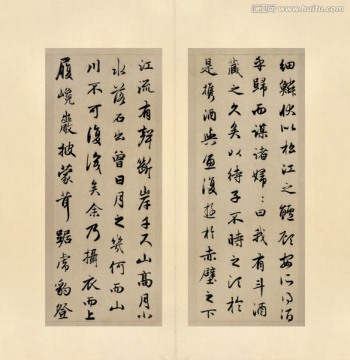 細鱗狀似松江之鱸顧安所得酒
乎歸而謀諸婦〻曰我有斗酒
藏之久矣以待子不時之須於
是攜酒與魚復遊於赤壁之下
江流有聲斷岸千尺山高月小
水落石出曾日月之幾何而山
川不可復識矣余乃攝衣而上
履巉巖披蒙茸踞虎豹登
www.huitu.com